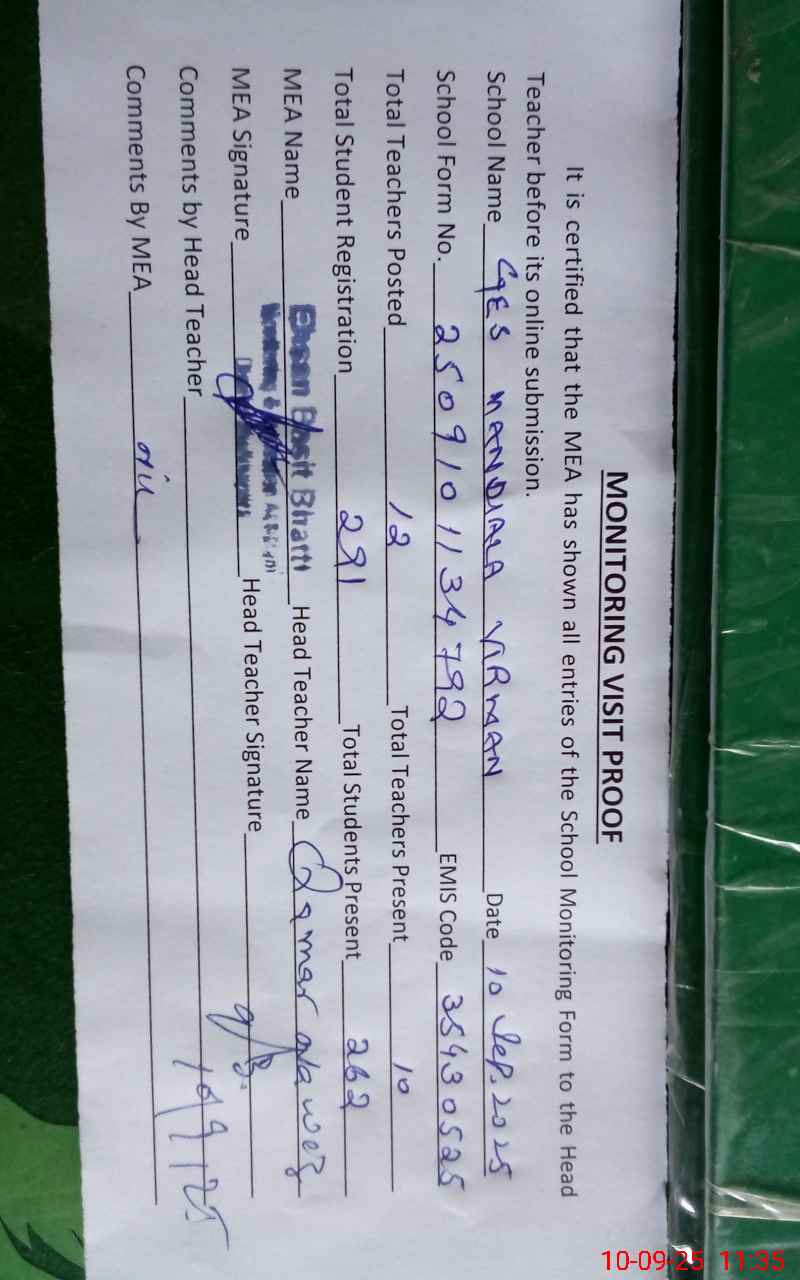 MONITORING VISIT PROOF
It is certified that the MEA has shown all entries of the School Monitoring Form to the Head
Teacher before its online submission.
School Name GES MANDIALA VIRMAN Date 10 Sep. 2025
School Form No. 2509101134792 EMIS Code 35430525
Total Teachers Posted 12 Total Teachers Present 10
Total Student Registration 291 Total Students Present 262
MEA Name Bhatti Head Teacher Name Qamar
MEA Signature Head Teacher Signature
Comments by Head Teacher
Comments By MEA
10-09-25 11:35